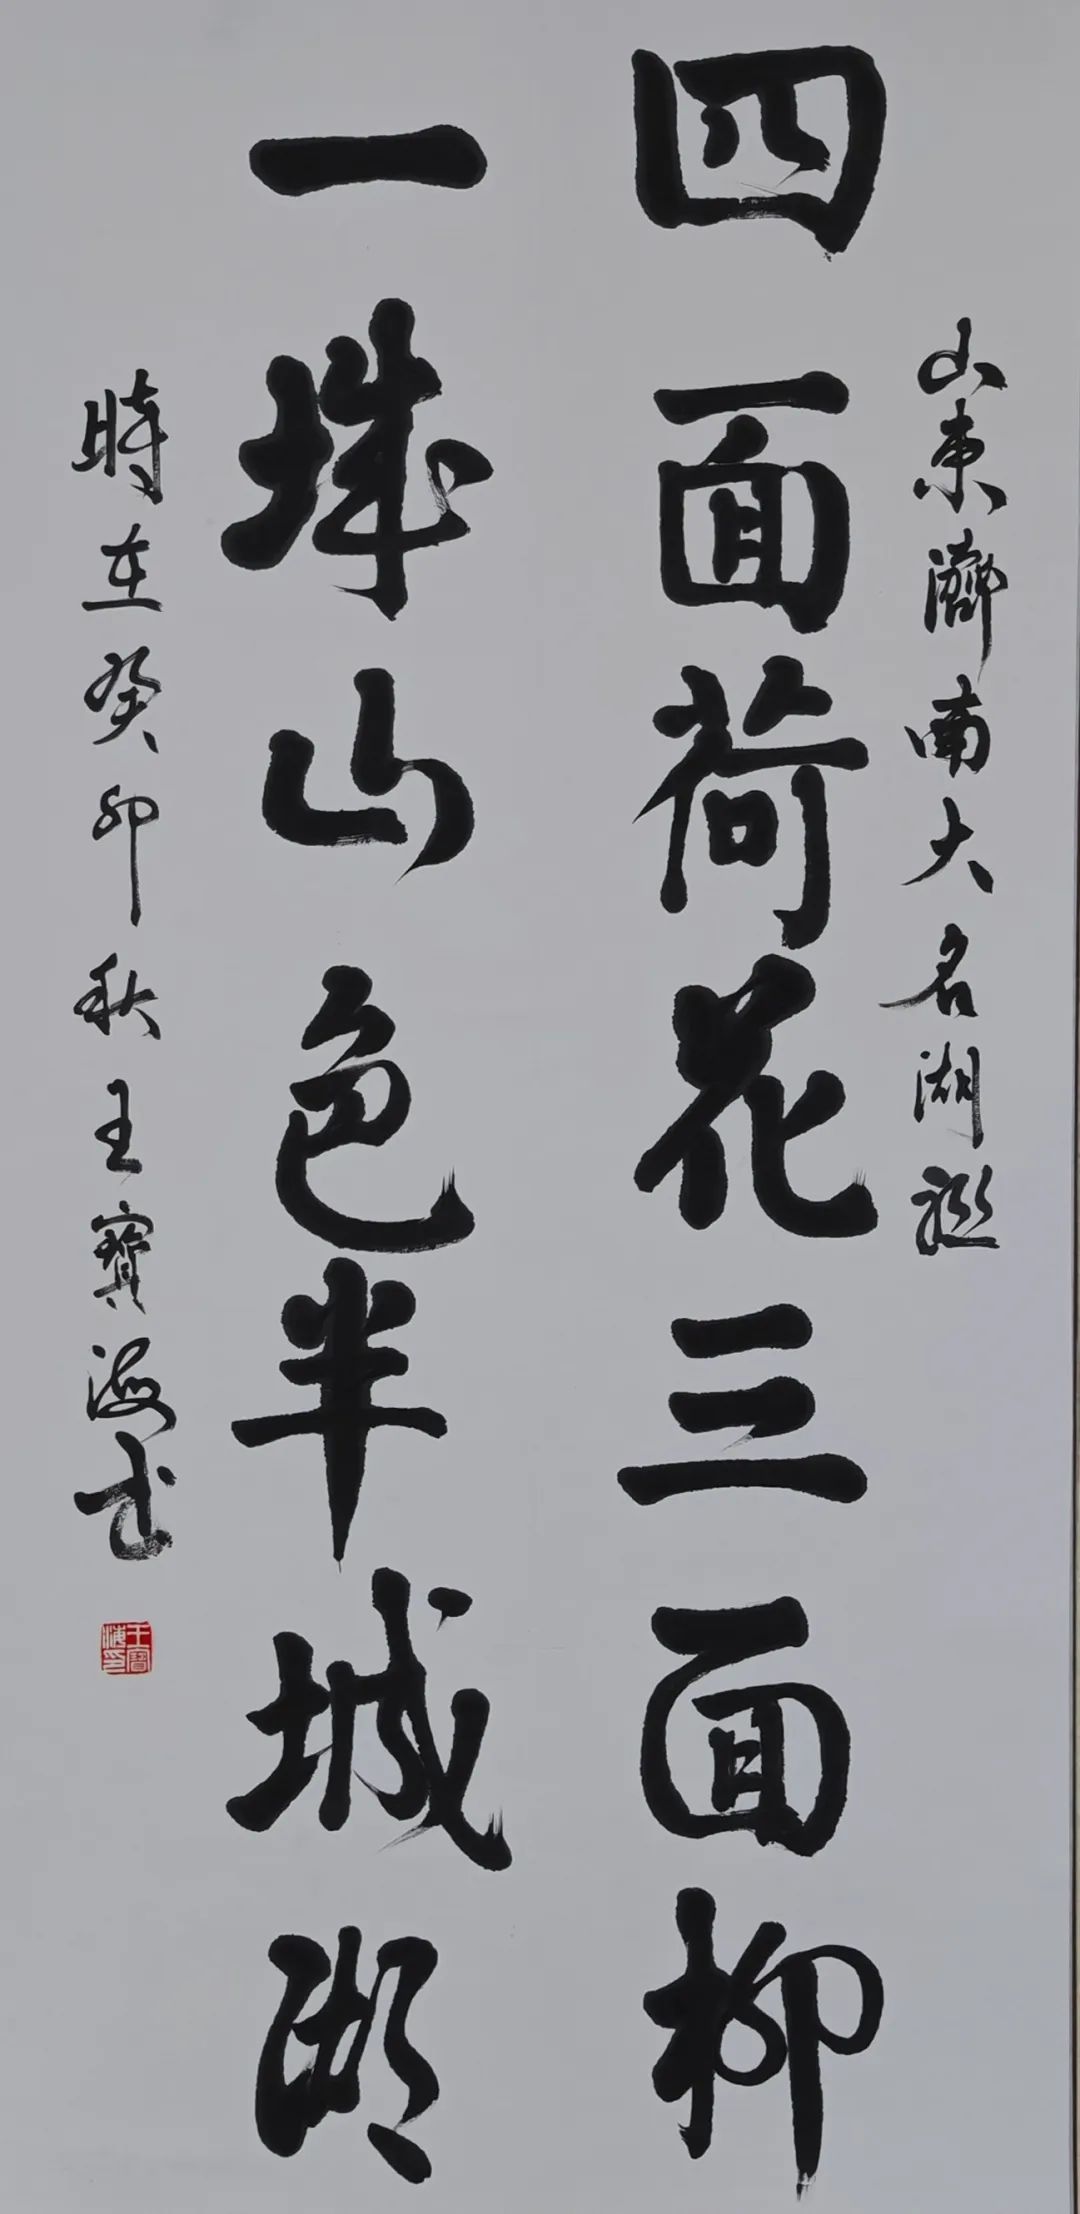 山東濟南大名湖
四面荷花三面柳
一城山色半城湖
時在癸卯秋王寶海
王寶海印